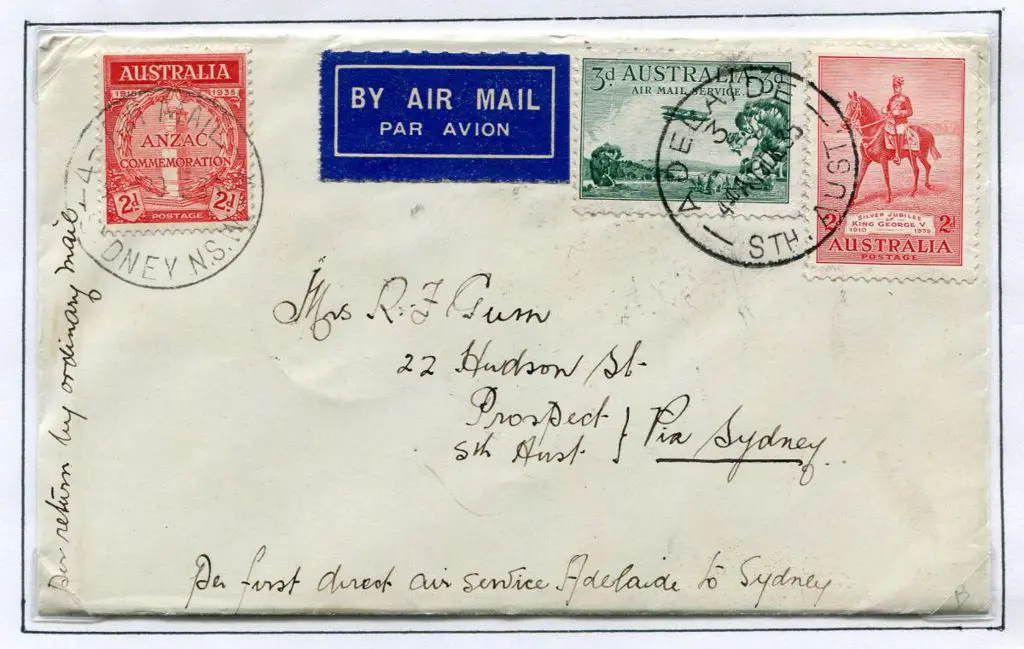 AUSTRALIA
1915 1935
ANZAC
COMMEMORATION
2d 2d
POSTAGE
DNEY N.S.W
BY AIR MAIL
PAR AVION
3d AUSTRALIA 3d
AIR MAIL SERVICE
ADELAIDE
3
STH. AUST
SILVER JUBILEE
OF
KING GEORGE V
1910 1935
2d 2d
AUSTRALIA
POSTAGE
Mrs R. F Gum
22 Hudson St
Prospect
Sth Aust } Via Sydney
Per first direct air service Adelaide to Sydney
per return by ordinary mail
B